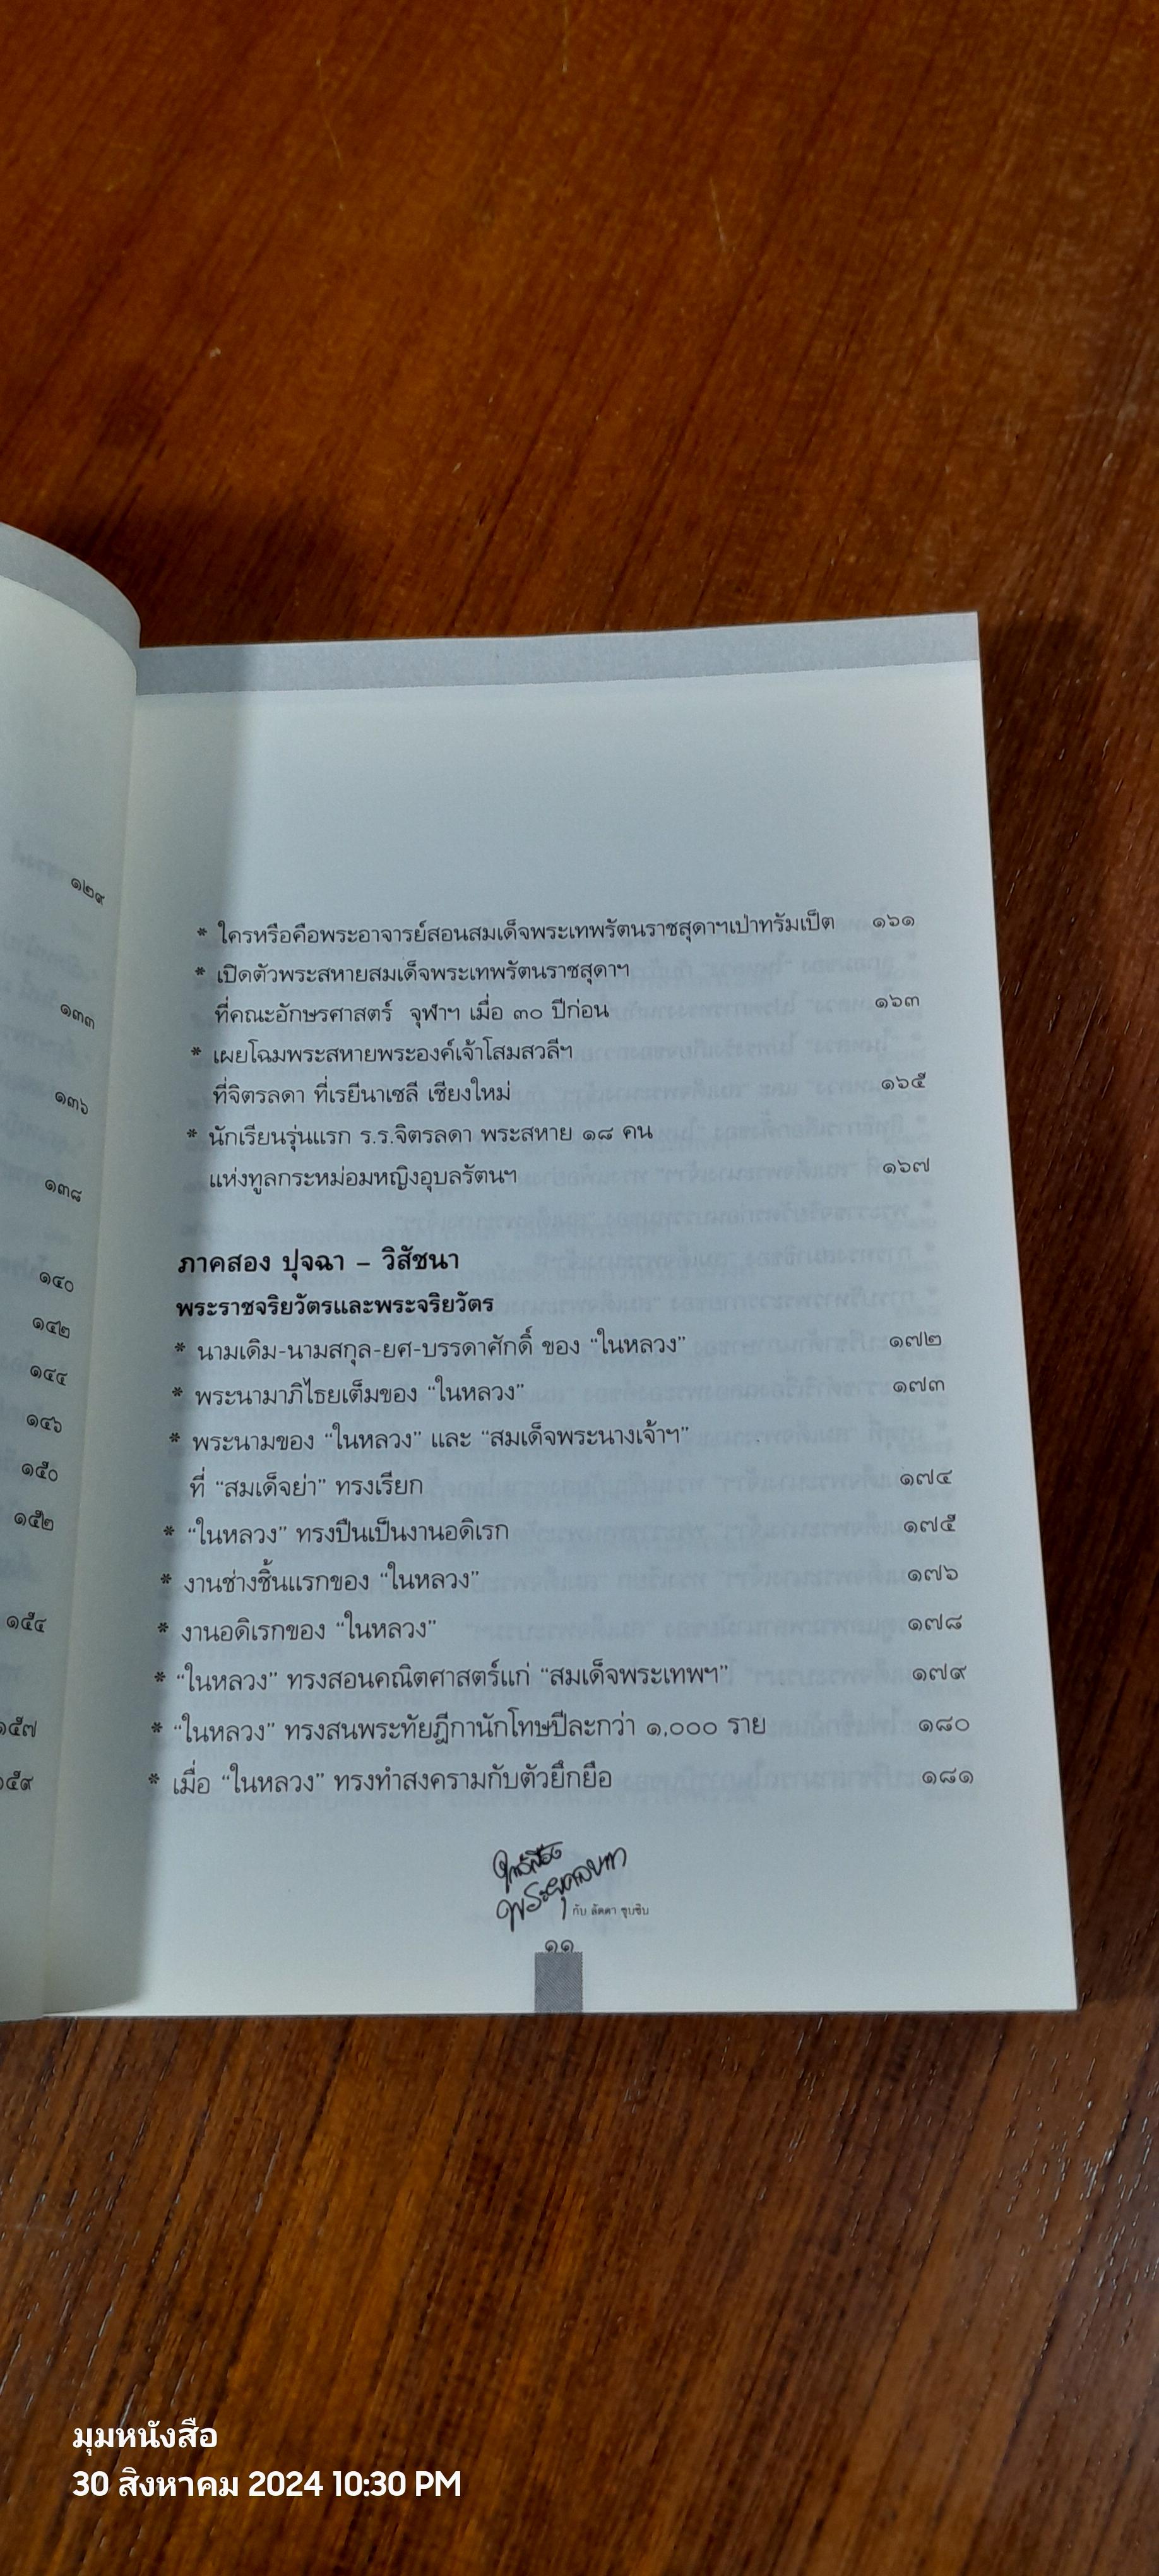 ๑๒๙
๑๓๓
๑๓๖
๑๓๘
๑๔๐
๑๔๒
๑๔๔
๑๔๖
๑๕๐
๑๕๒
๑๕๔
๑๕๗
๑๕๙
* ใครหรือคือพระอาจารย์สอนสมเด็จพระเทพรัตนราชสุดาฯเป่าทรัมเป็ต ๑๖๑
* เปิดตัวพระสหายสมเด็จพระเทพรัตนราชสุดาฯ
ที่คณะอักษรศาสตร์ จุฬาฯ เมื่อ ๓๐ ปีก่อน ๑๖๓
* เผยโฉมพระสหายพระองค์เจ้าโสมสวลีฯ
ที่จิตรลดา ที่เรยีนาเชลี เชียงใหม่ ๑๖๕
* นักเรียนรุ่นแรก ร.ร.จิตรลดา พระสหาย ๑๘ คน
แห่งทูลกระหม่อมหญิงอุบลรัตนฯ ๑๖๗
ภาคสอง ปุจฉา – วิสัชนา
พระราชจริยวัตรและพระจริยวัตร
* นามเดิม-นามสกุล-ยศ-บรรดาศักดิ์ ของ “ในหลวง” ๑๗๒
* พระนามาภิไธยเต็มของ “ในหลวง” ๑๗๓
* พระนามของ “ในหลวง” และ “สมเด็จพระนางเจ้าฯ”
ที่ “สมเด็จย่า” ทรงเรียก ๑๗๔
* “ในหลวง” ทรงปืนเป็นงานอดิเรก ๑๗๕
* งานช่างชิ้นแรกของ “ในหลวง” ๑๗๖
* งานอดิเรกของ “ในหลวง” ๑๗๘
* “ในหลวง” ทรงสอนคณิตศาสตร์แก่ “สมเด็จพระเทพฯ” ๑๗๙
* “ในหลวง” ทรงสนพระทัยฎีกานักโทษปีละกว่า ๑,๐๐๐ ราย ๑๘๐
* เมื่อ “ในหลวง” ทรงทำสงครามกับตัวยึกยือ ๑๘๑
ใต้เบื้อง
พระยุคลบาท
กับ ลัดดา ซุบซิบ
๑๑
มุมหนังสือ
30 สิงหาคม 2024 10:30 PM